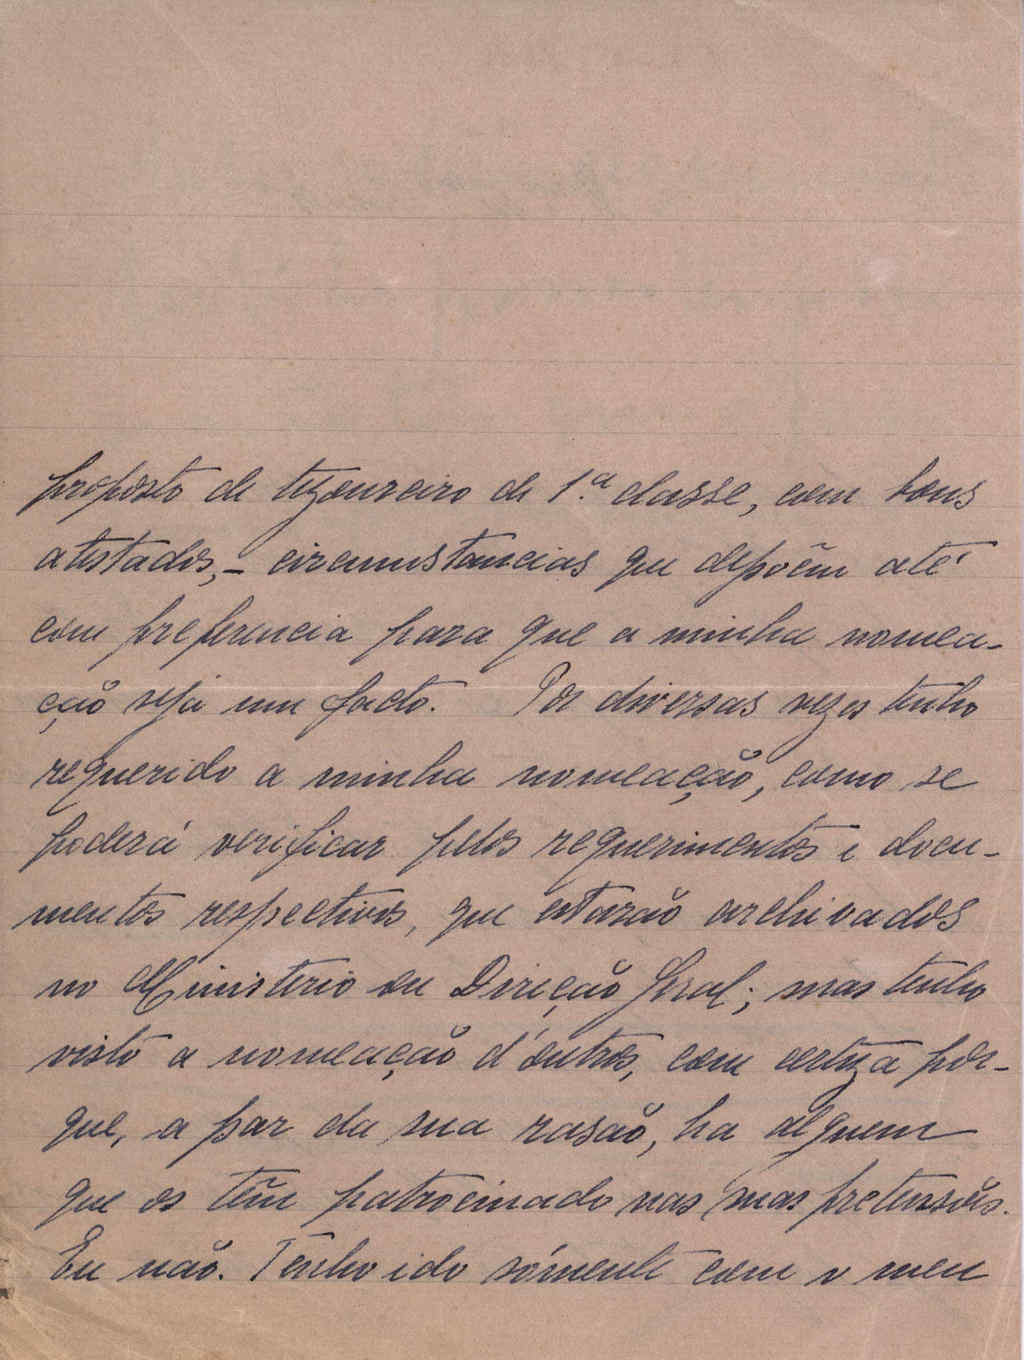 proposto de tezoureiro de 1.ª classe, com bons
atestados, – circumstancias que depõem até
com preferencia para que a minha nomea-
ção seja um facto. Por diversas vezes tenho
requerido a minha nomeação, como se
poderá verificar pelos requerimentos e docu-
mentos respectivos, que estarão archivados
no Ministerio ou Direcção Geral; mas tenho
visto a nomeação d'outros, com certeza por-
que, a par da sua rasão, ha alguem
que os têm patrocinado nas suas pretensões.
Eu não. Tenho ido sómente com o meu